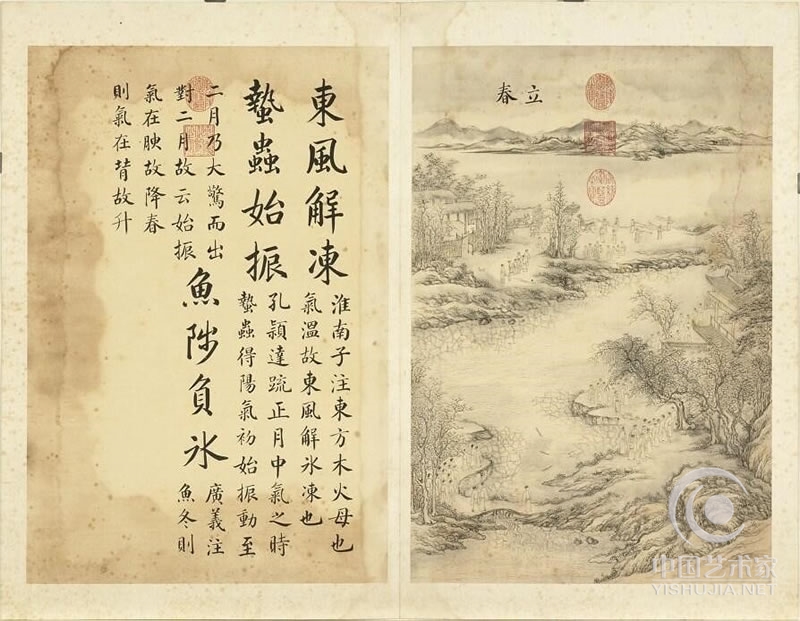 立春
東風解凍
淮南子注東方木火母也
氣溫故東風解氷凍也
蟄蟲始振
孔頴達疏正月中氣之時
蟄蟲得陽氣初始振動至
二月乃大驚而出
對二月故云始振
魚陟負氷
廣義注
魚冬則
氣在腴故降春
則氣在背故升
中国艺术家
YISHUJIA.NET